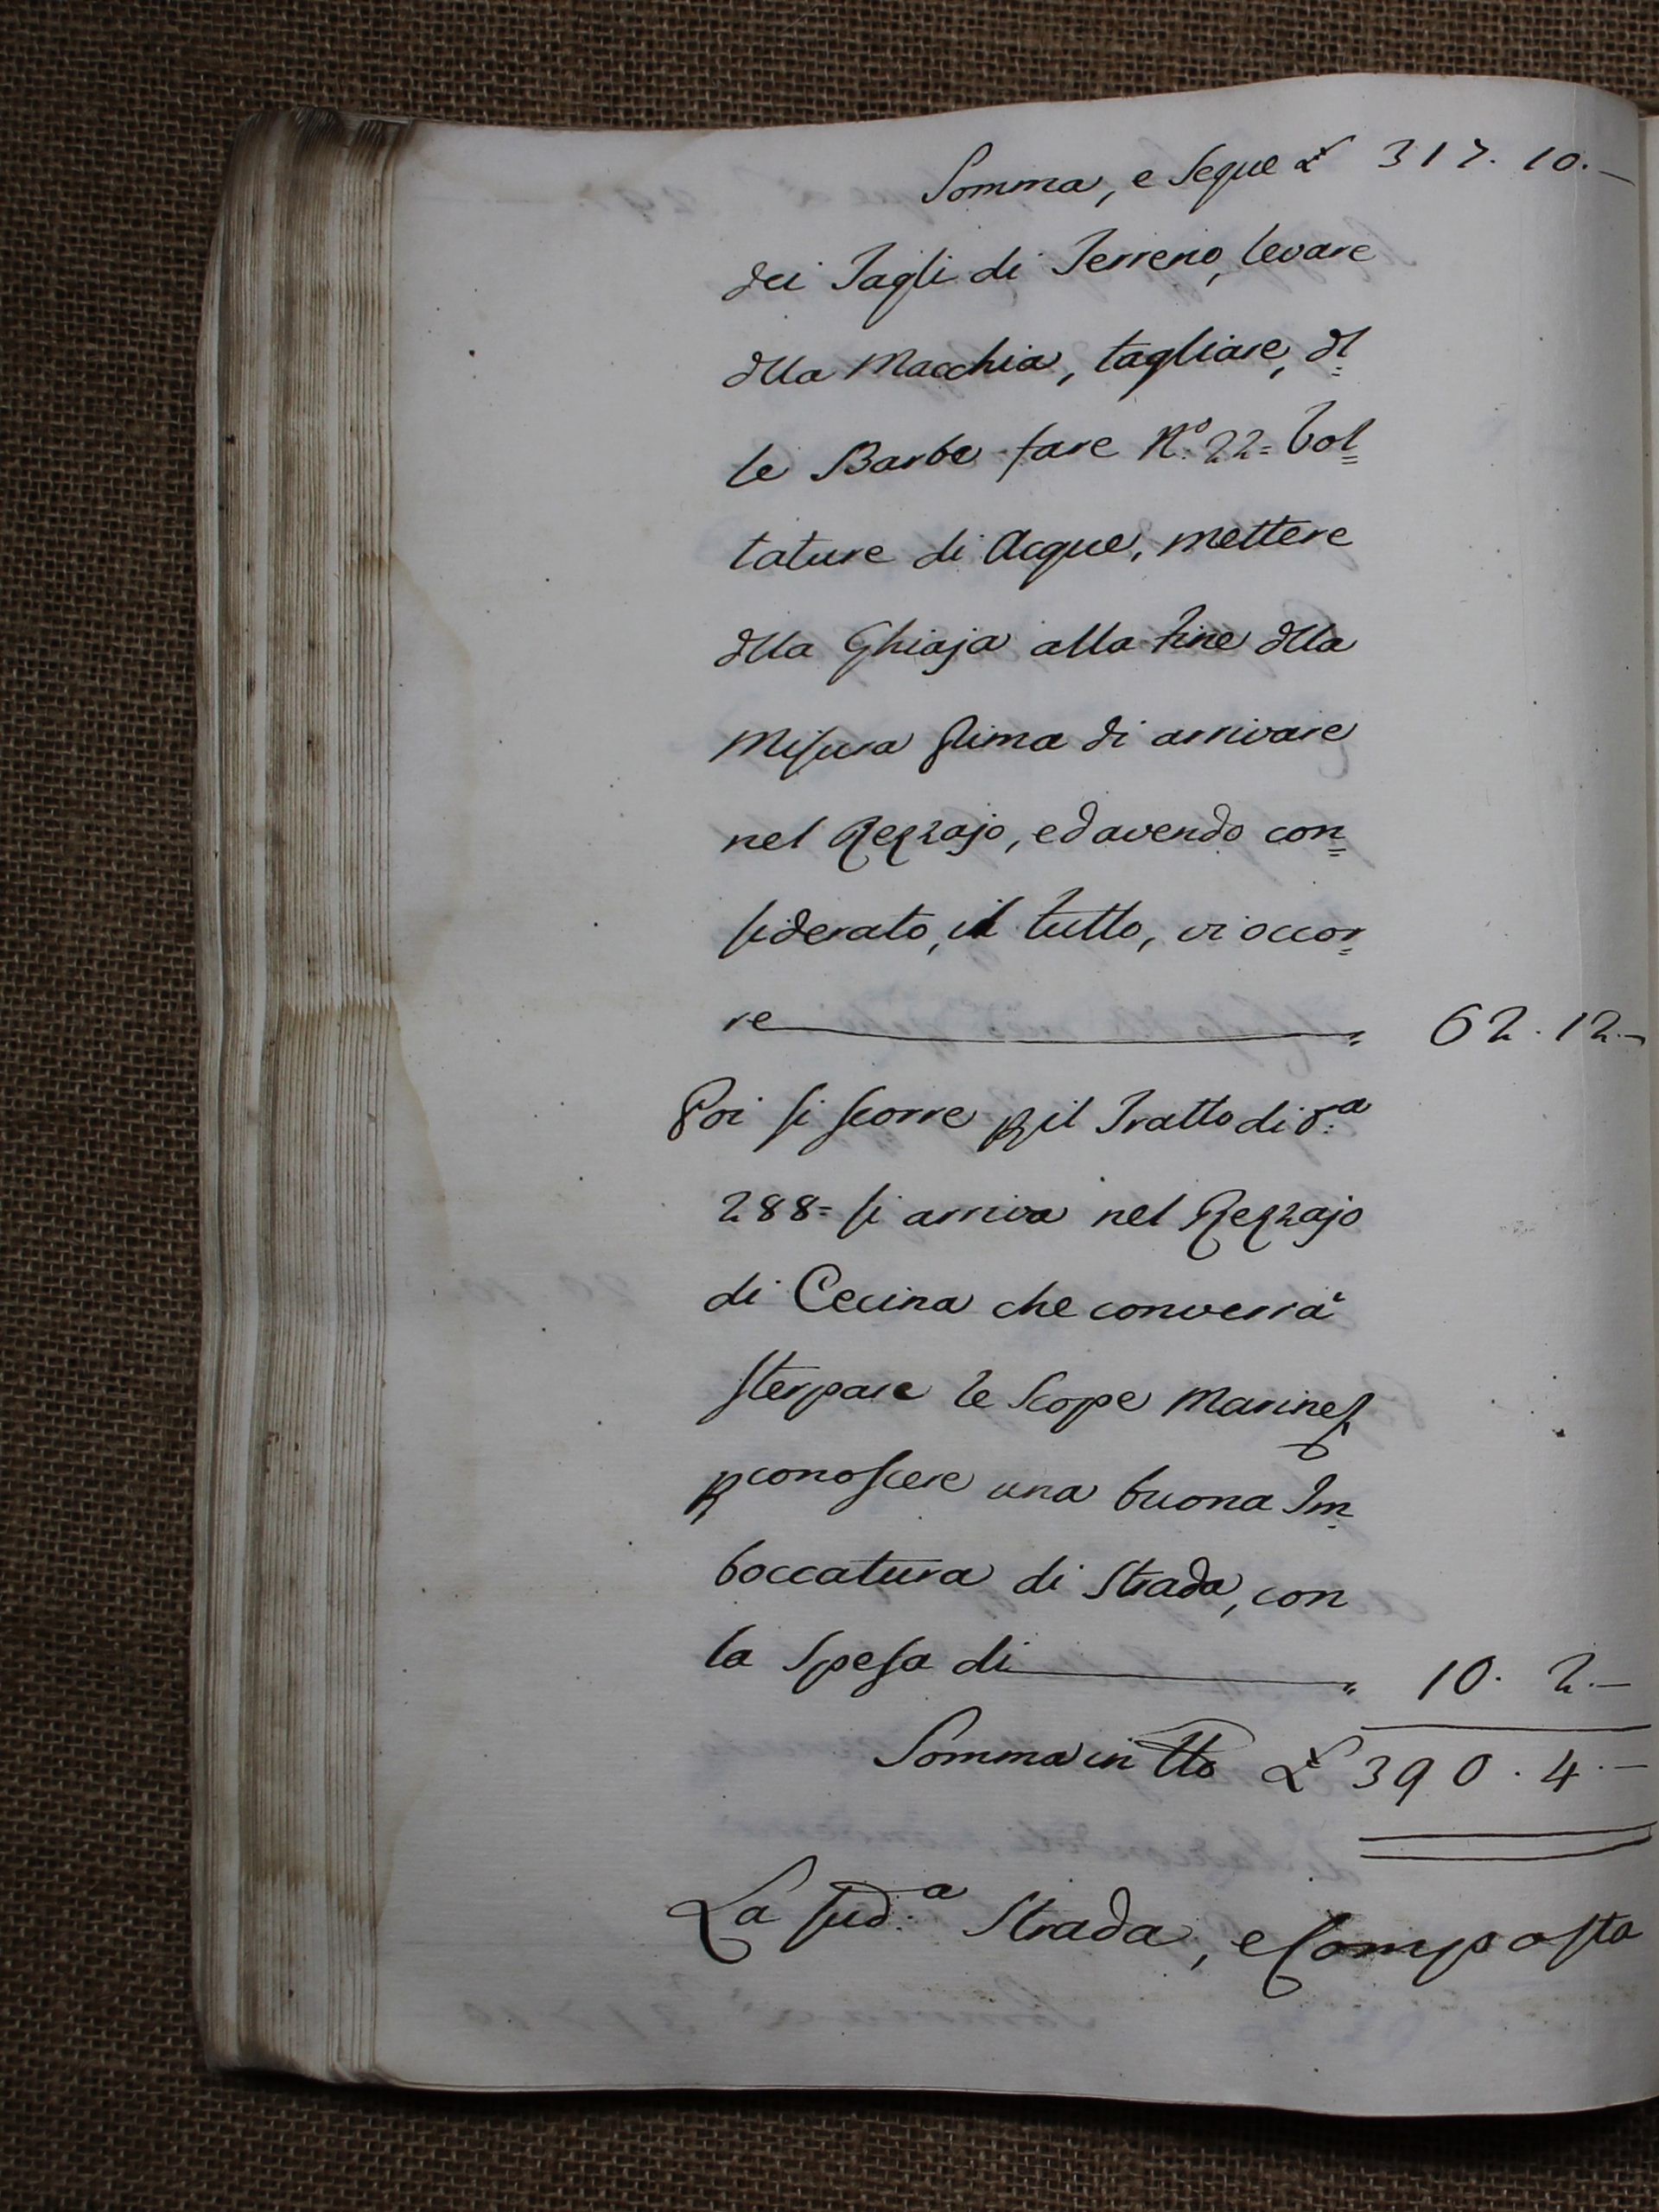 Somma, e Segue £ 317. 10. —
dei Tagli di Terreno, levare
dlla Macchia, tagliare, dl=
le Barbe fare N.º 22= Vol=
tature di Acque, mettere
dlla Ghiaja alla fine dlla
Misura prima di arrivare
nel Rezzajo, ed avendo con=
siderato, il tutto, vi occor=
re — " 62. 12. —
Poi si scorre p il Tratto di
288= si arriva nel Rezzajo
di Cecina che converrà
sterpare le Scope Marine
p conoscere una buona Im=
boccatura di Strada, con
la Spesa di — " 10. 2. —
Somma in tto £ 390. 4. —
La sud.ª Strada, e Composta